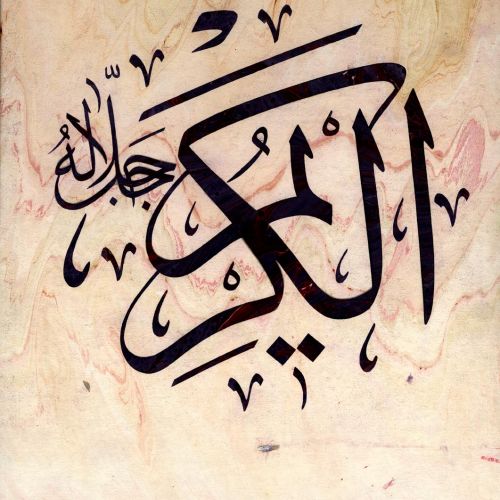 الكريم
جل جلاله